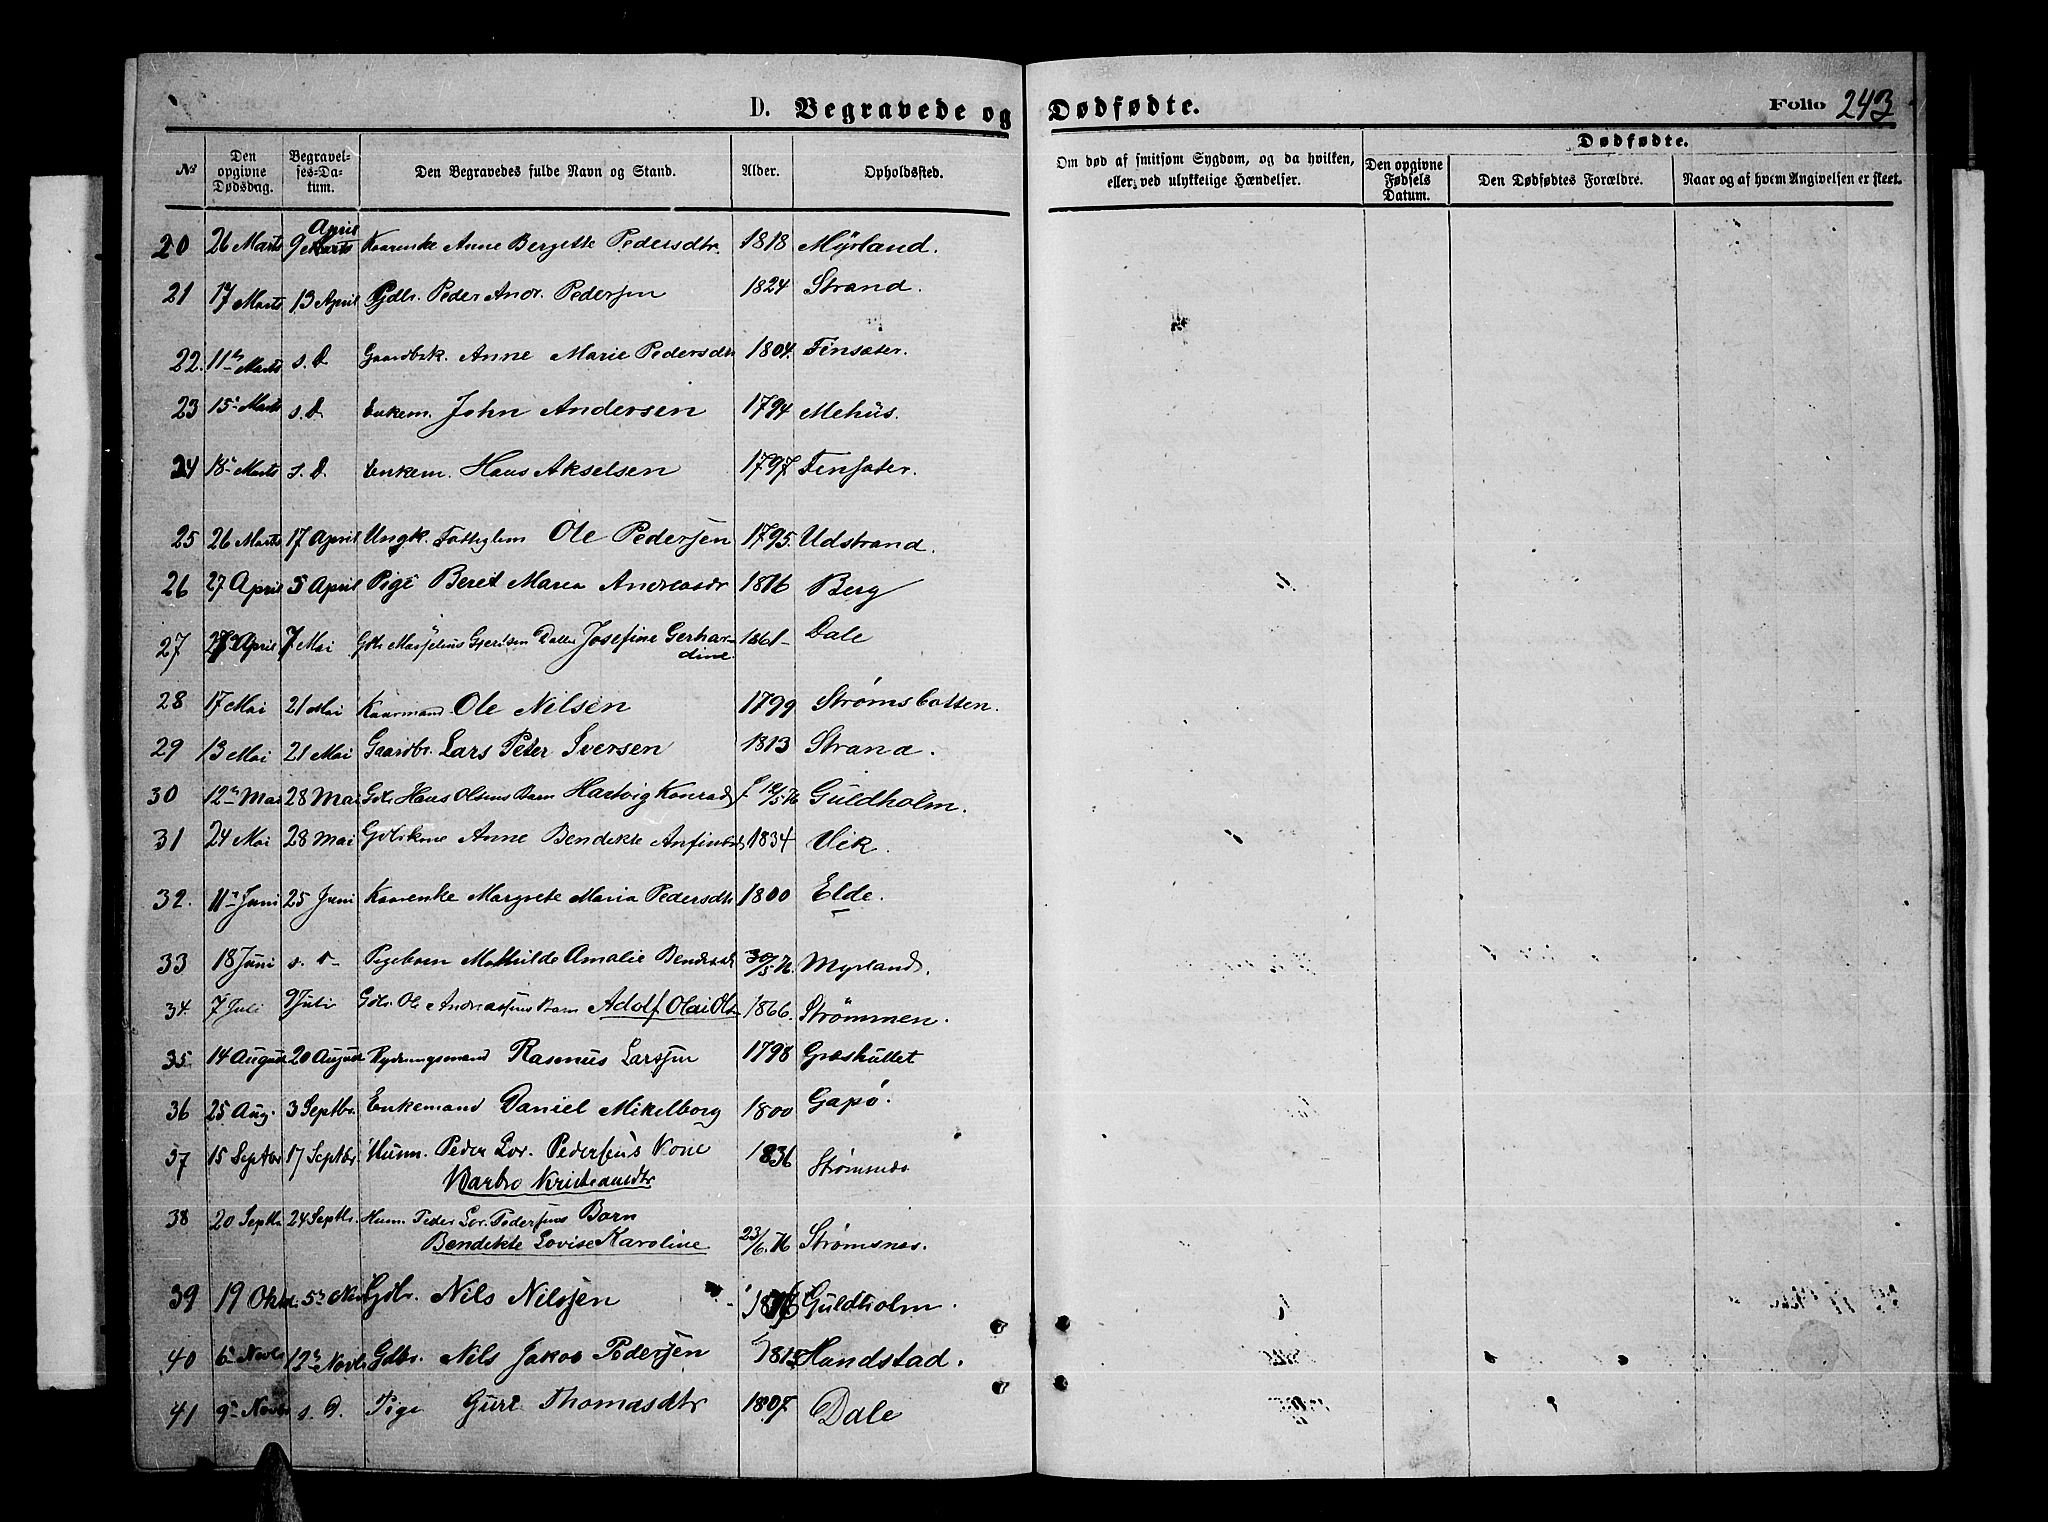 D. Begravede og Dødfødte.
Folio 243
№ Den opgivne Dødsdag. Begravelses-Datum. Den Begravedes fulde Navn og Stand. Alder. Opholdssted. Om død af smitsom Sygdom, og da hvilken, eller, ved ulykkelige Hændelser. Den opgivne Fødsels Datum. Dødfødte. Den Dødfødtes Forældre. Naar og af hvem Angivelsen er skeet.
April
20 26 Marts 9 Marts Kaarenke Anne Bergette Pedersdtr. 1818 Myrland.
21 17 Marts 13 April Gdbr. Peder Andr. Pedersen 1824 Strand.
22. 11te Marts s. D. Gaardbrk. Anne Marie Pedersdtr 1804. Finsæter.
23 15e Marts s. D. Enkem. John Andersen 1794 Mehus.
24 18e Marts s. D. Enkem. Hans Akselsen 1797 Finsæter.
25 26 Marts 17 April Ungk. Fattiglem Ole Pedersen 1795. Udstrand.
26 27 April 5 April Pige Beret Maria Andreasdr 1816 Berg
27 27 April 7 Mai Gdbr Marselius Gjertsen Datter Josefine Gerhar-
dine. 1861 Dale
28 17 Mai 21 Mai Kaarmand Ole Nilsen 1799 Strømsbotten.
29 13 Mai 21 Mai Gaardbr. Lars Peter Iversen 1813 Strand.
30 12te Mai 28 Mai Gdbr Hans Olsens Barn Hartvig Konrad f. 12/5.76 Guldholm.
31 24 Mai 28 Mai Gdbrkone Anne Bendikte Anfinsd 1834 Vik.
32. 11te Juni 25 Juni Kaarenke Margrete Maria Pedersdtr 1800 Elde.
33 18 Juni s. D Pigebarn Mathilde Amalie Bendiksd 30/5.76. Myrland.
34. 7 Juli 9 Juli Gdbr. Ole Andreassens Barn Adolf Olai Ols. 1866. Strømmen.
35 14 August 20 August Rydningsmand Rasmus Larsen 1798 Græshullet
36 25 Aug. 3 Septbr. Enkemand Daniel Mikelborg 1800 Gapø.
37 15 Septbr 17 Septbr. Husm. Peder Lor. Pedersens Kone
Barbro Kristiansdtr 1836 Strømsnes
38 20 Septbr 24 Septbr. Husm. Peder Lor. Pedersens Barn
Bendikte Lovise Karoline 23/6.76 Strømsnes.
39 19 Oktb. 5te Nov Gdbr. Nils Nilssen Guldholm.
40 6e Novbr 12te Novbr Gdbr. Nils Jakob Pedersen 1813 Hundstad.
41 9e Novbr s. D. Pige Guri Thomasdtr 1807 Dale